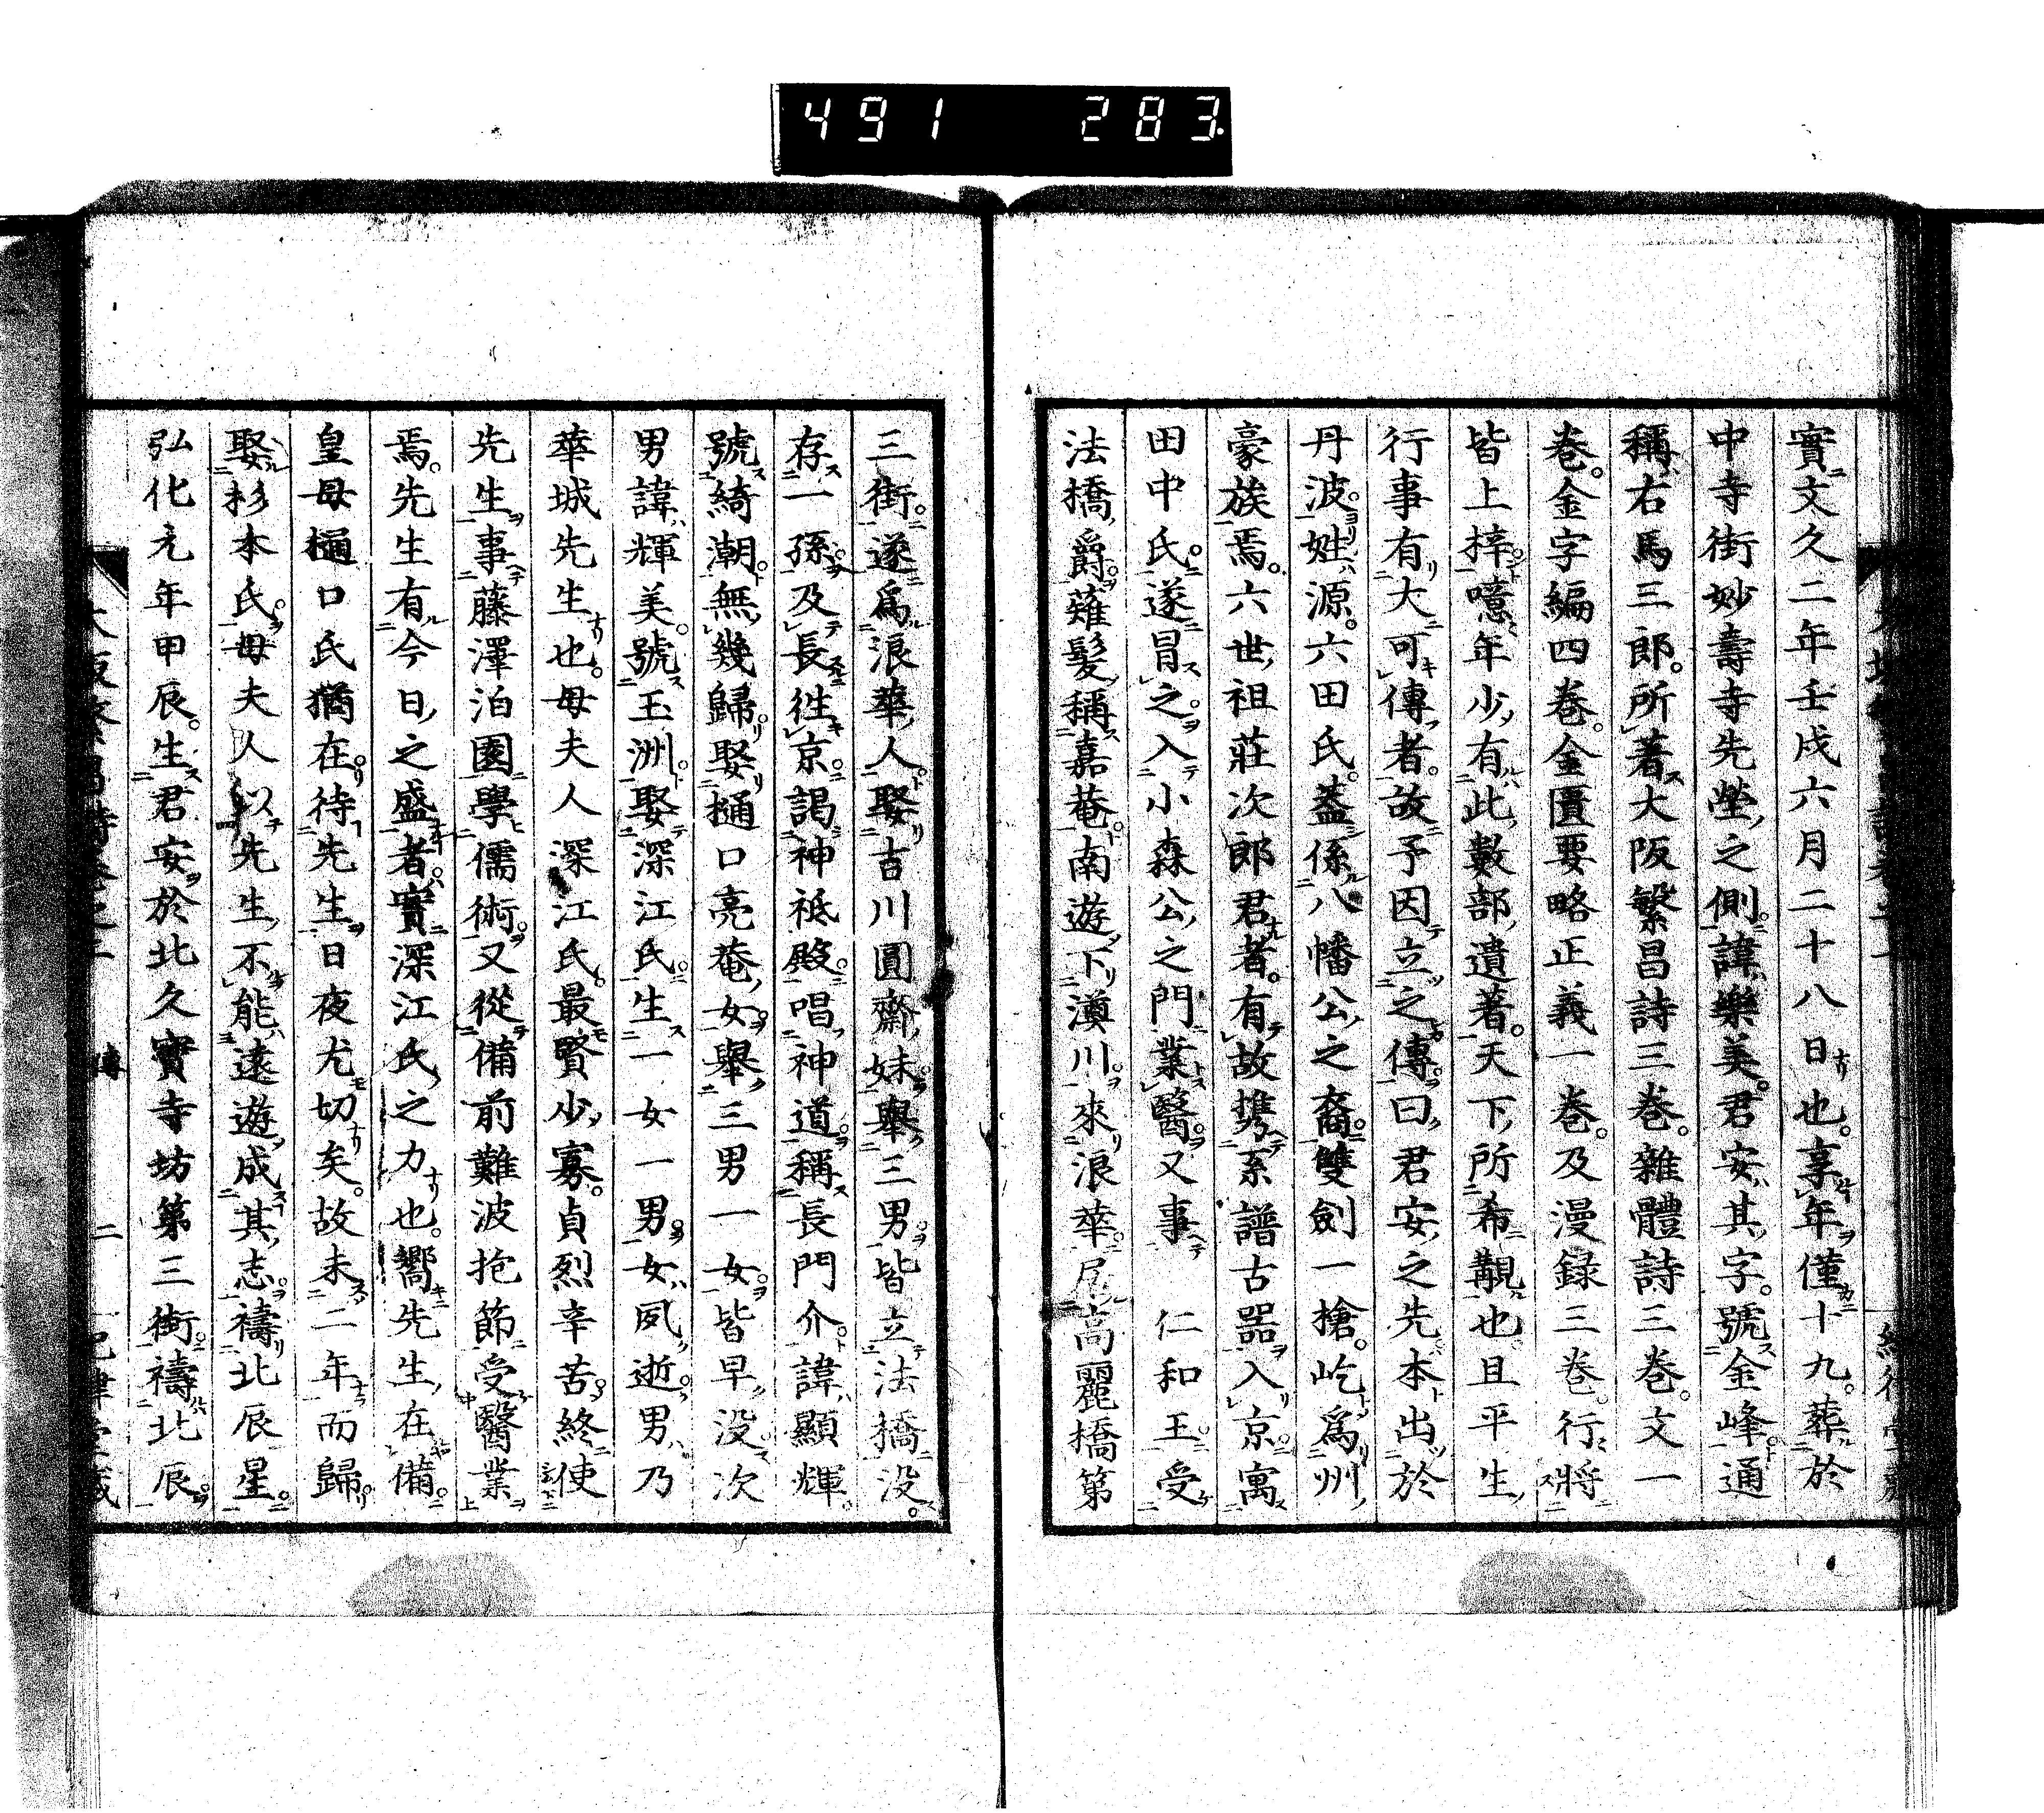 491 283
實文久二年壬戌六月二十八日也。享年僅十九。葬於
中寺街妙壽寺先塋之側。諱樂美。君安其字。號金峰。通
稱右馬三郎。所著大阪繁昌詩三巻。雜體詩三巻。文一
巻。金字編四巻。金匱要略正義一巻。及漫録三巻。行將
皆上梓。噫年少有此數部遺著。天下所希覯也。且平生
行事有大可傳者。故予因立之傳曰。君安之先。本出於
丹波。姓源。六田氏。蓋係八幡公之裔。雙劍一槍。屹爲州
豪族焉。六世祖莊次郎君者。有故携系譜古器入京。寓
田中氏。遂冒之。入小森公之門業醫。又事 仁和王。受
法橋爵。薙髮稱嘉菴。南遊下澱川。來浪華。尻高麗橋第
三街。遂爲浪華人。娶古川圓齋妹。舉三男。皆立法橋。没。
存一孫。及長徃京。謁神祇殿。唱神道。稱長門介。諱顯輝。
號綺潮。無幾歸。娶樋口亮菴女。舉三男一女。女皆早没。次
男諱輝美。號玉洲。娶深江氏。生一女一男。女夙逝。男乃
華城先生也。母夫人深江氏。最賢。少寡。貞烈辛苦。終使
先生事藤澤泊園學儒術。又從備前難波抱節受醫業
焉。先生有今日之盛者。實深江氏之力也。嚮先生在備。
皇母樋口氏猶在。待先生日夜尤切矣。故未二年而歸。
娶杉本氏。母夫人以先生不能遠遊成其志。禱北辰星。
弘化元年甲辰。生君安於北久寶寺坊第三街。禱北辰。
傳 二